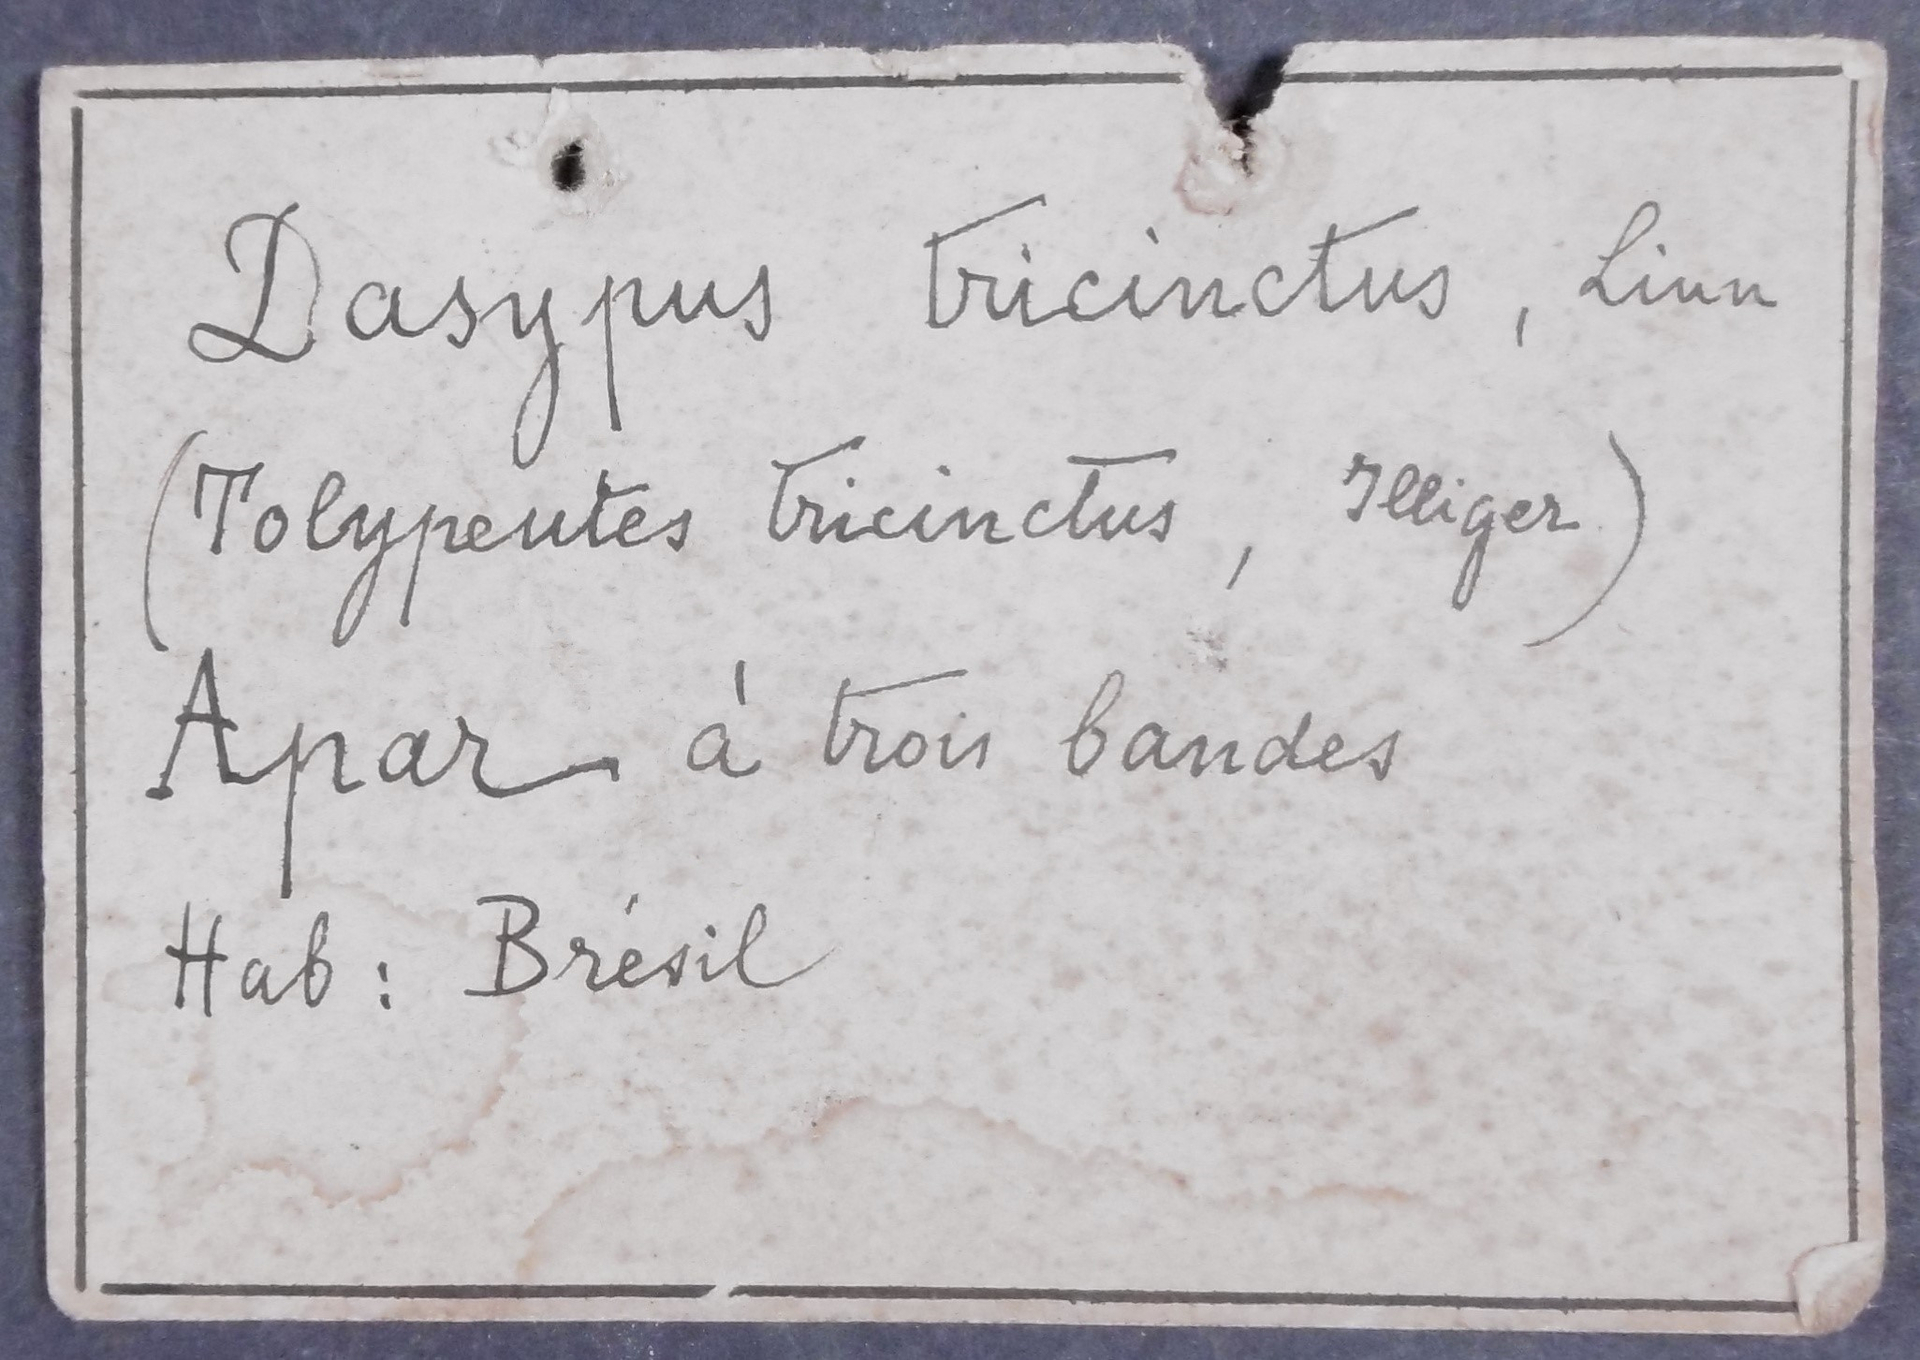 Dasypus tricinctus, Linn
(Tolypeutes tricinctus, Illiger)
Apar à trois bandes
Hab: Brésil